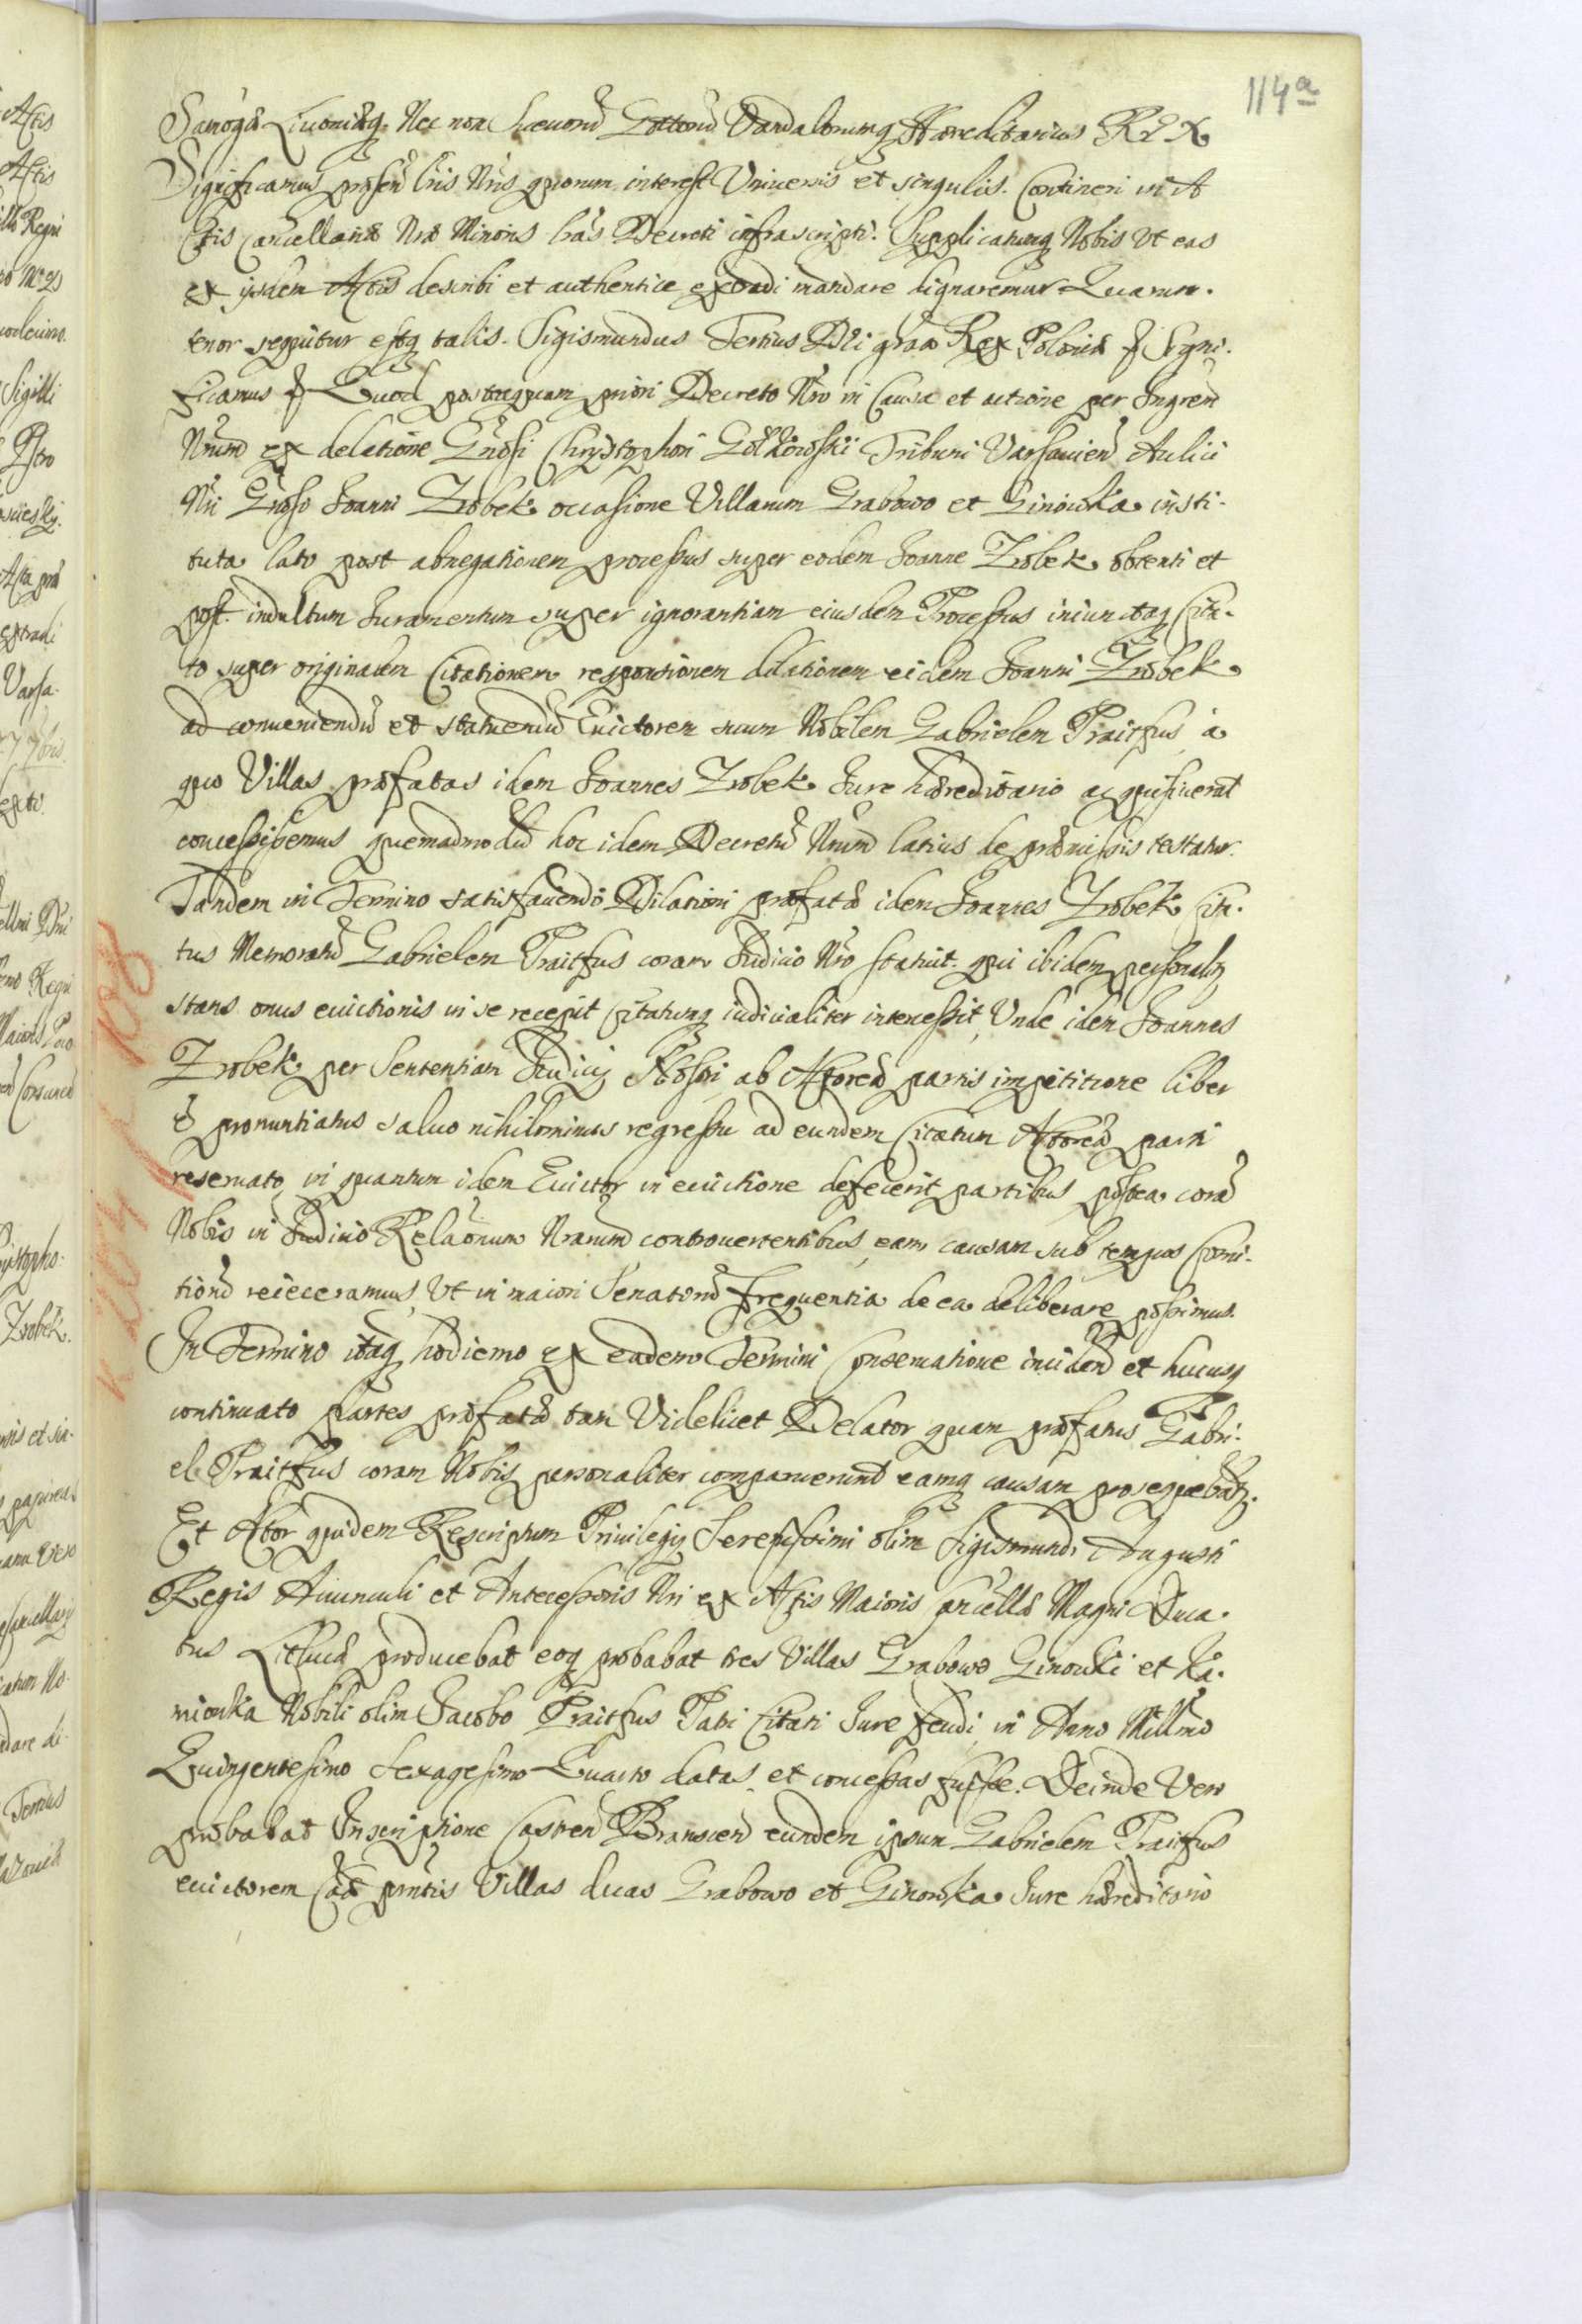 114a
Samogæ Livoniæq Nec non Suevorū Gottorū Vandalorumq Hæreditarius REX
Significamus præsen͂ Lr͂is Nr͂is quorum interest Vniversis et singulis. Contineri in A
ctis Cancellariæ Nr͂æ Minoris lr͂as Decreti infrascripti. Supplicatumq Nobis Vt eas
ex ijsdem Actis describi et authentice extradi mandare dignaremur Quarum.
tenor sequitur estq talis. Sigismundus Tertius Dei gr͂a Rex Poloniæ & Signi-
ficamus & Quod postquam priori Decreto Nr͂o in Causa et actione per
Nr͂um ex delatione Gn͂osi Chrystophori Tribuni Varsavien͂ Aulici
Nr͂i Gn͂oso Joanni Zrobek occasione Villarum Grabowo et Ginowka insti-
tuta lato post abnegationem processus super eodem Joanne Zrobek obtenti et
post indultum Juramentum super ignorantiam eiusdem Processus iniunctaq Cita-
to super originalem Citationem responsionem dilationem eidem Joanni Zrobek
ad conveniendū et statuendū Evictorem suum Nobilem Gabrielem Praitfus à
quo Villas præfatas idem Joannes Zrobek Jure hæreditario acquisiverat
concessissemus quemadmodū hoc idem Decretū Nr͂um latius de præmissis testatur.
Tandem in Termino satisfaciendo Dilationi præfatæ idem Joannes Zrobek Cita-
tus Memoratū Gabrielem Praitfus coram Judicio Nr͂o statuit qui ibidem personalr͂
stans onus evictionis in se recepit Citatumq iudicialiter intercessit, Vnde idem Joannes
Zrobek per Sententiam Judicij Nostri ab Actoreæ partis impetitione liber
ē pronuntiatus salvo nihilominus regressu ad eundem Citatum Actoreæ parti
reservato in quantum idem Evictor in evictione defecerit, partibus postea corā
Nobis in Judicio Relationum Nr͂arum controvertentibus eam causam sub tempus Comi-
tiorū reieceramus, Vt in maiori Senatorū frequentia de ea deliberare possimus.
In Termino itaq hodierno ex eadem Termini Conservatione inciden͂ et hucusq
continuato Partes præfatæ tam Videlicet Delator quam præfatus Gabri-
el Praitfus coram Nobis personaliter comparuerunt eamq causam prosequebatr͂.
Et Actor quidem Rescriptum Privilegij Serenissimi olim Sigismundi Augusti
Regis Avunculi et Antecessoris Nr͂i ex Actis Maioris Cancellæ Magni Duca-
tus Lithuæ producebat eoq probabat tres Villas Grabowo Ginowki et Ka-
mionka Nobili olim Jacobo Praitfus Patri Citati Jure feudi in Anno Mill͂mo
Quingentesimo Sexagesimo Quarto datas et concessas fuisse. Deinde Vero
probabat Inscriptione Castren͂ Branscen͂ eundem ipsum Gabrielem Praitfus
evictorem Cāæ pr͂ntis Villas duas Grabowo et Ginowka Jure hæreditario